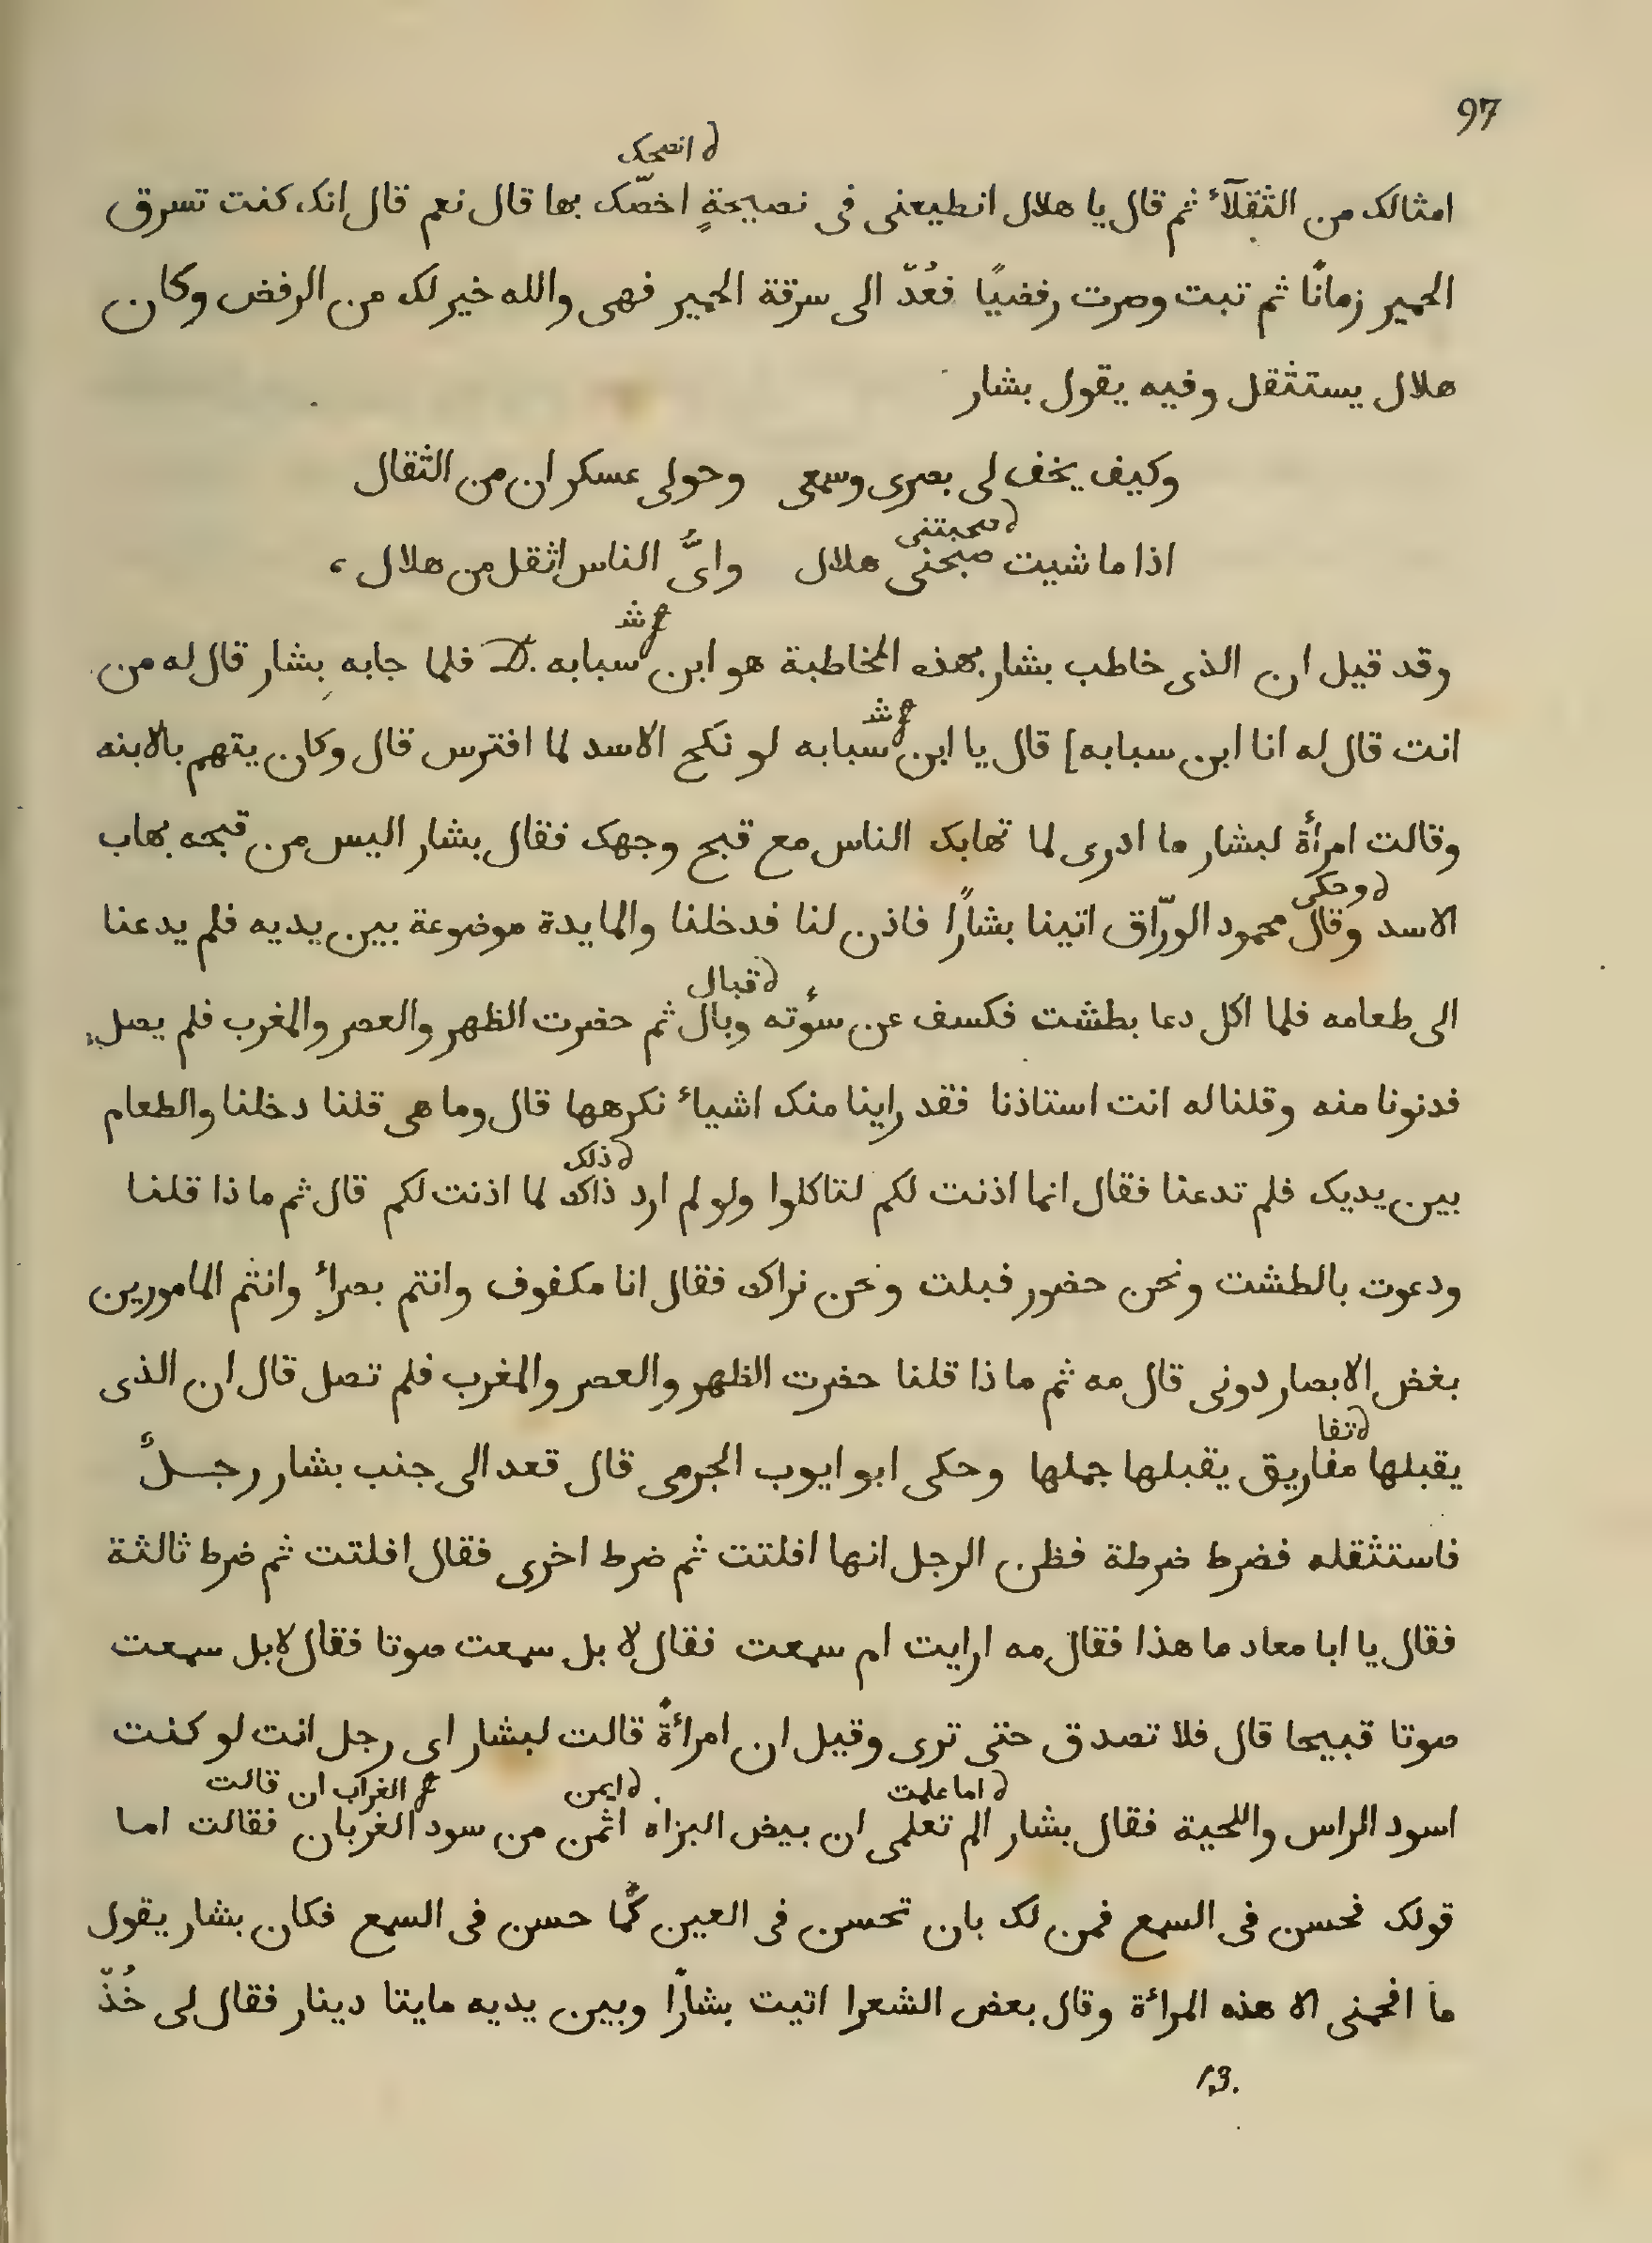 97
ծ انصحک
امثالک من الثقلآء ثم قال يا هلال انطيعنى فى نصيحةٍ اخصّک بها قال نعم قال انک کنت تسرق
الحمير زمانًا ثم تبت وصرت رفضيًا فعُدّ الى سرقة الحمير فهى والله خير لک من الرفض وکان
هلال يستثقل وفيه يقول بشار
وکيف يخف لى بصرى وسمعى وحولى عسکر ان من الثقال
ծ صحبتنى
اذا ما شيت صبحنى هلال واىُّ الناس اثقل من هلال ،
شـ
وقد قيل ان الذى خاطب بشار بهذه المخاطبة هو ابن سبابه D. فلما جابه بشار قال له من
شـ
انت قال له انا ابن سبابه] قال يا ابن سبابه لو نکح الاسد لما افترس قال وکان يتهم بالابنه
وقالت امرأة لبشار ما ادرى لما تهابک الناس مع قبح وجهک فقال بشار اليس من قبحه يهاب
ծ وحکى
الاسد وقال محمود الورّاق اتينا بشارًا فاذن لنا فدخلنا والمايدة موضوعة بين يديه فلم يدعنا
ծ قبال
الى طعامه فلما اکل دعا بطشت فکسف عن سوٴته وبال ثم حضرت الظهر والعصر والمغرب فلم يصل
فدنونا منه وقلنا له انت استاذنا فقد راينا منک اشياء نکرهها قال وما هى قلنا دخلنا والطعام
ծ ذلک
بين يديک فلم تدعنا فقال انما اذنت لکم لتاکلوا ولو لم ارد ذاک لما اذنت لکم قال ثم ما ذا قلنا
ودعوت بالطشت ونحن حضور فبلت ونحن نراک فقال انا مکفوف وانتم بصراء وانتم المامورين
بغض الابصار دونى قال مه ثم ما ذا قلنا حضرت الظهر والعصر والمغرب فلم تصل قال ان الذى
ծ تفا
يقبلها مفاريق يقبلها جملها وحکى ابو ايوب الجرمى قال قعد الى جنب بشار رجـلٌ
فاستثقله فضرط ضرطة فظن الرجل انها افلتت ثم ضرط اخرى فقال افلتت ثم ضرط ثالثة
فقال يا ابا معاد ما هذا فقال مه ارايت ام سمعت فقال لا بل سمعت صوتا فقال لا بل سمعت
صوتا قبيحا قال فلا تصدق حتى ترى وقيل ان امرأةً قالت لبشار اى رجل انت لو کنت
ծ اما علمت ծ ايمن الغراب ان قالت
اسود الراس واللحية فقال بشار الم تعلمى ان بيض البزاه اثمن من سود الغربان فقالت اما
قولک فحسن فى السمع فمن لک بان تحسن فى العين کما حسن فى السمع فکان بشار يقول
ما افحمنى الا هذه المرائة وقال بعض الشعرا اتيت بشارًا وبين يديه مايتا دينار فقال لى خُذّ
13.